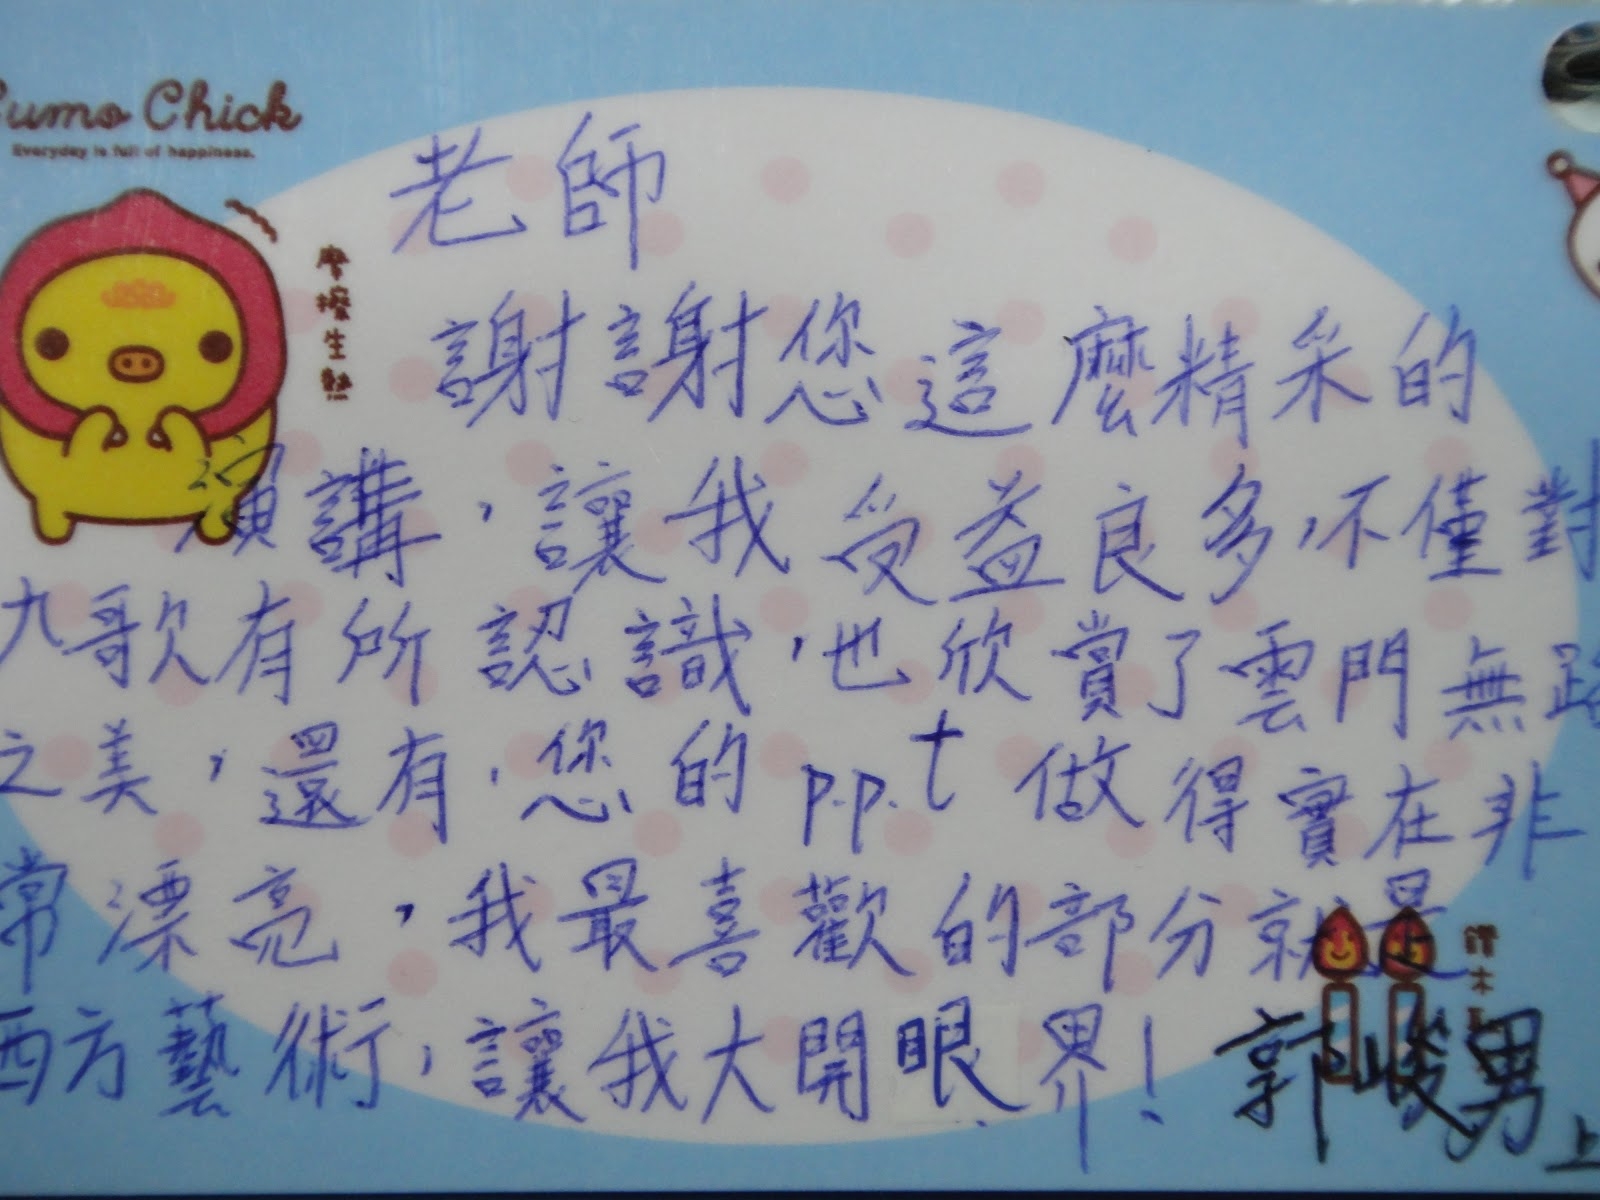 Sumo Chick
Everyday is full of happiness.
摩擦生熱
老師
謝謝您這麼精采的
演講，讓我受益良多，不僅對
九歌有所認識，也欣賞了雲門無路
之美，還有，您的p.p.t做得實在非
常漂亮，我最喜歡的部分就是
西方藝術，讓我大開眼界！
郭峻男上